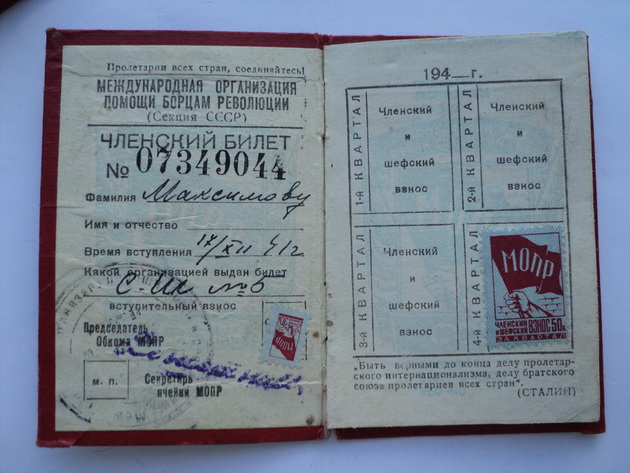 Пролетарии всех стран, соединяйтесь!
МЕЖДУНАРОДНАЯ ОРГАНИЗАЦИЯ
ПОМОЩИ БОРЦАМ РЕВОЛЮЦИИ
(Секция СССР)
ЧЛЕНСКИЙ БИЛЕТ
№ 07349044
Фамилия Максимову
Имя и отчество
Время вступления 17/XII 41г
Какой организацией выдан билет
№6
вступительный взнос
МОПР
Председатель
Обкома МОПР
м. п.
Секретарь
ячейки МОПР
194 — г.
1-й КВАРТАЛ
Членский
и
шефский
взнос
2-й КВАРТАЛ
Членский
и
шефский
взнос
3-й КВАРТАЛ
Членский
и
шефский
взнос
4-й КВАРТАЛ
МОПР
ЧЛЕНСКИЙ
И ШЕФСКИЙ ВЗНОС 50к.
ЗА КВАРТАЛ
„Быть верными до конца делу пролетар-
ского интернационализма, делу братского
союза пролетариев всех стран".
(СТАЛИН)